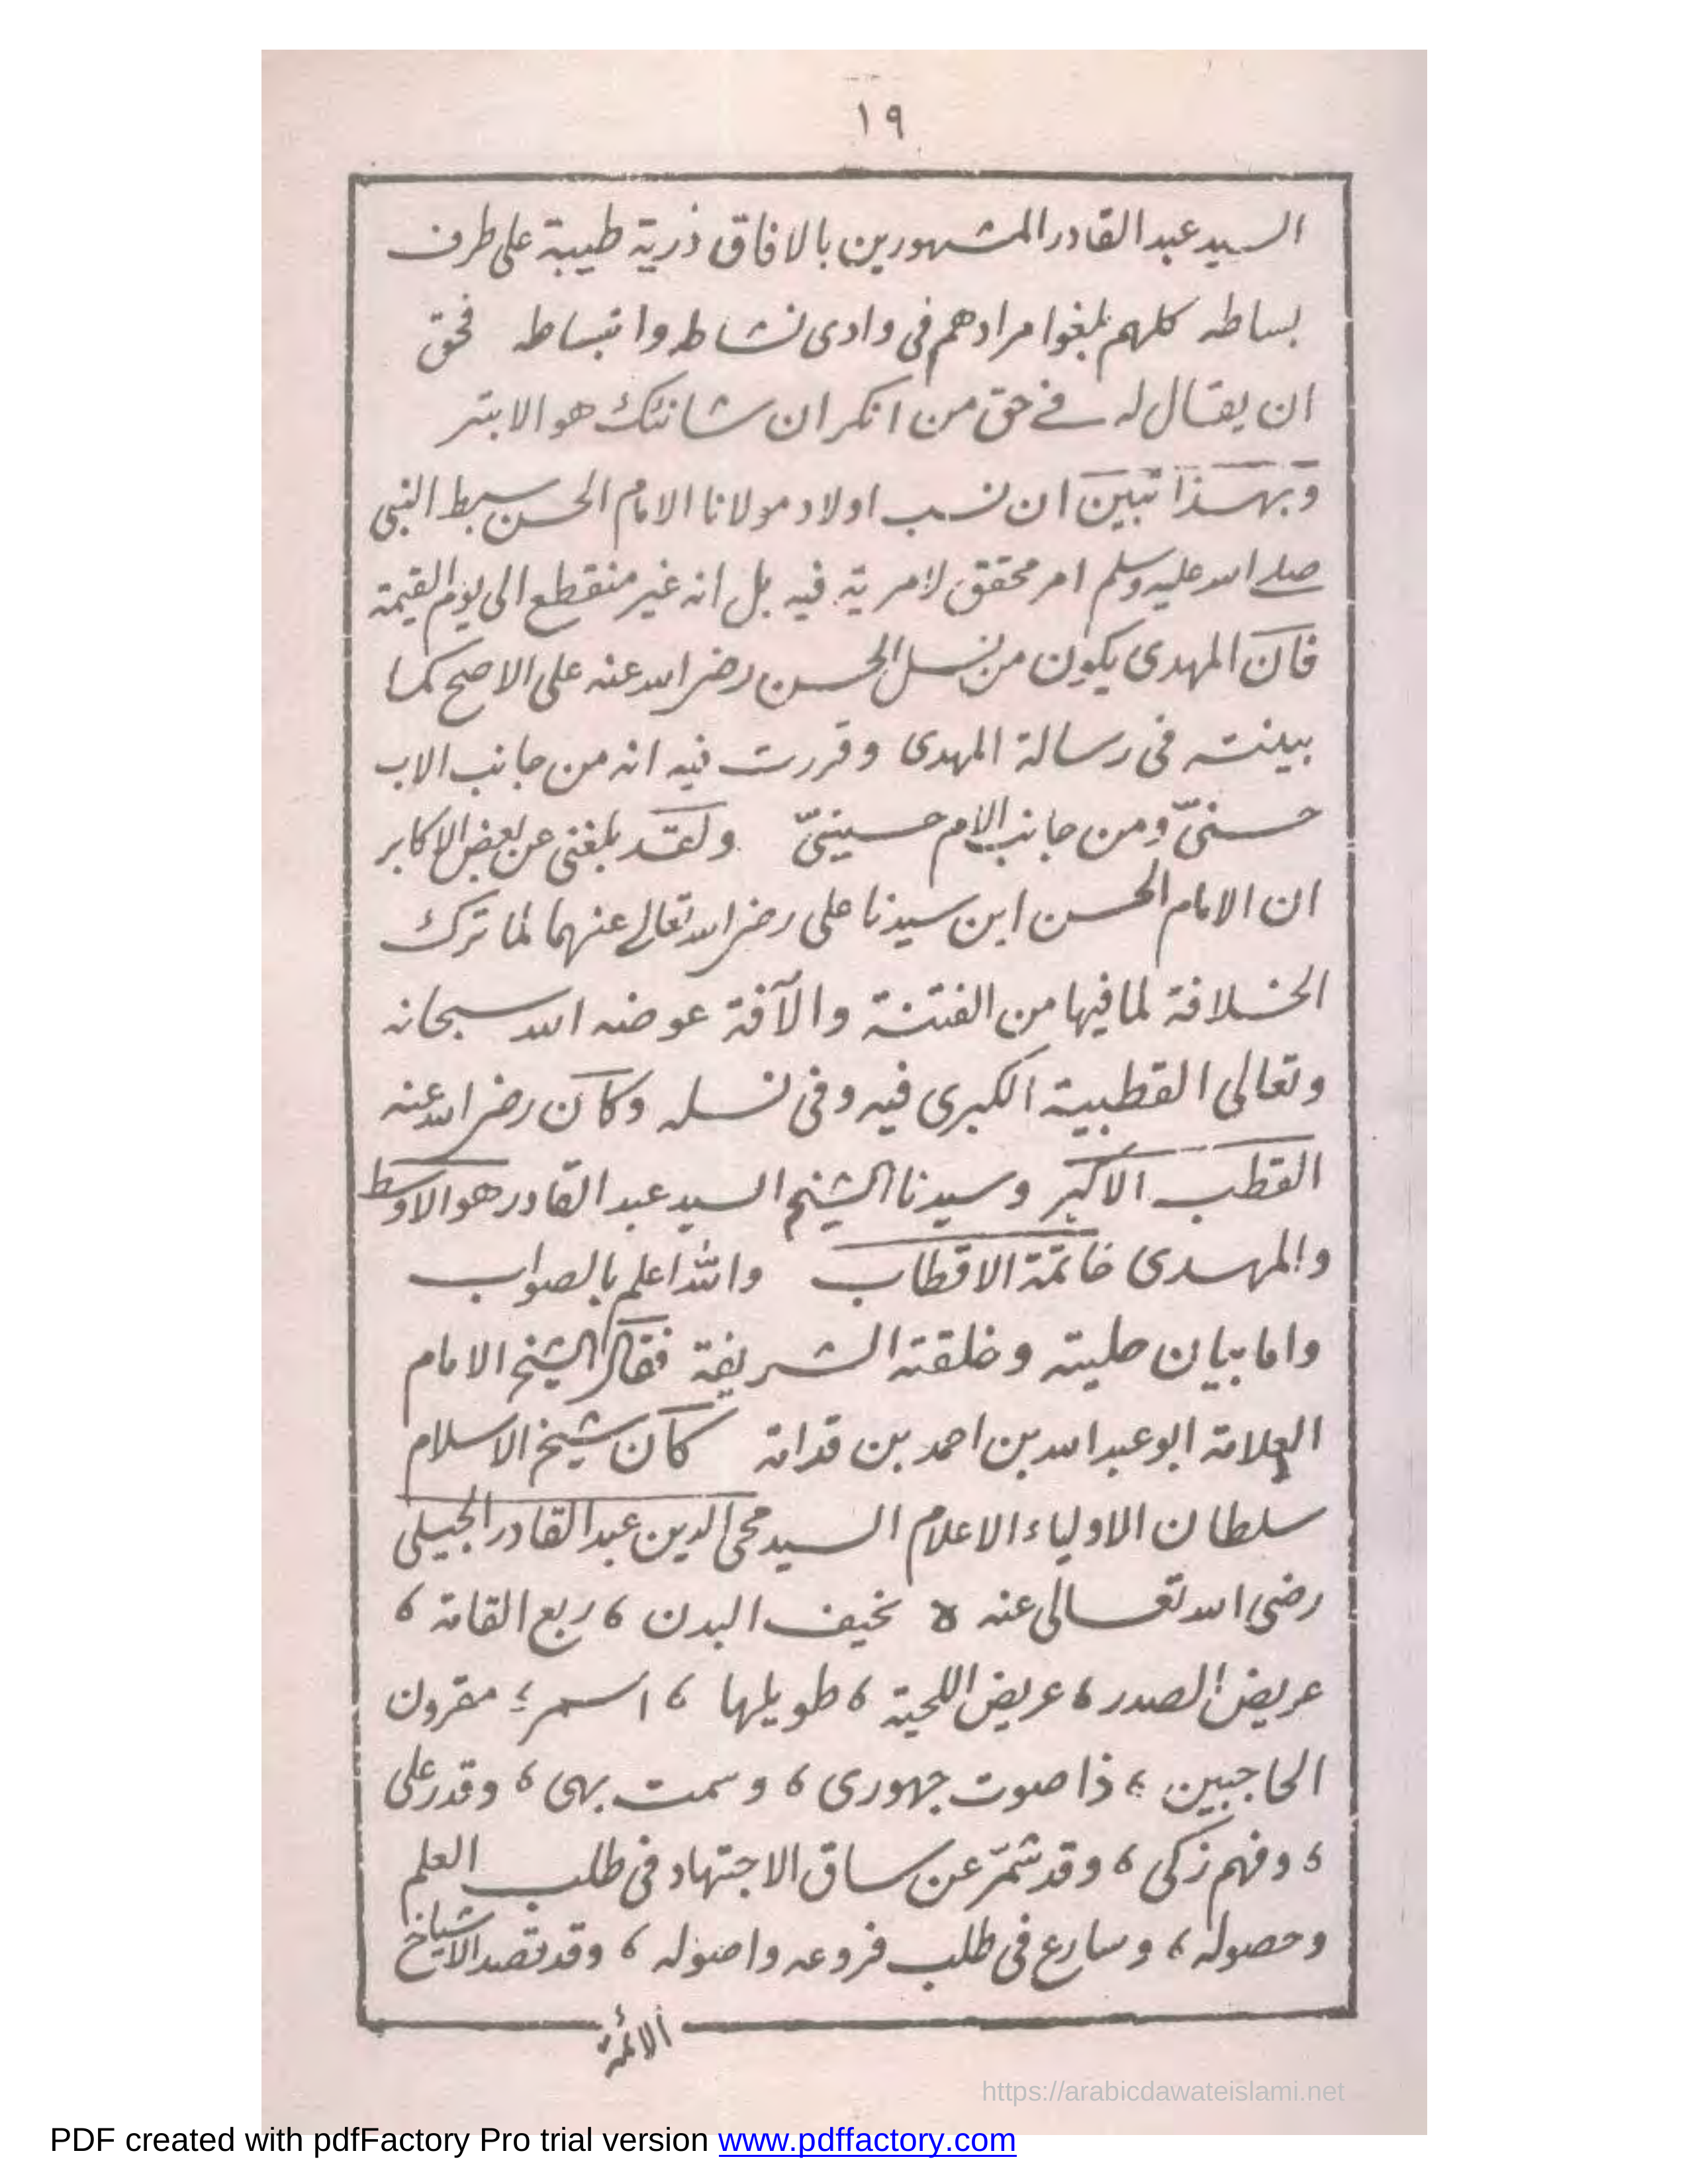 ١٩
السيد عبد القادر المشهورين بالافاق ذرية طيبة على طرف
بساطه كلهم بلغوا مرادهم فى وادى نشاط وانبساطه فحق
ان يقال له فے حق من انكر ان شانئك هو الابتر
وبهذا تبين ان نسب اولاد مولانا الامام الحسن سبط النبى
صلے الله عليه وسلم امر محقق لا مرية فيه بل انه غير منقطع الى يوم القيمة
فان المهدى يكون من نسل الحسن رضى الله عنه على الاصح كما
بينته فى رسالة المهدى وقررت فيه انه من جانب الاب
حسنىّ ومن جانب الام حسينىّ ولقد بلغنى عن بعض الاكابر
ان الامام الحسن ابن سيدنا على رضى الله تعالے عنهما لما ترك
الخلافة لما فيها من الفتنة والآفة عوضه الله سبحانه
وتعالى القطبية الكبرى فيه وفى نسله وكان رضى الله عنه
القطب الاكبر وسيدنا الشيخ السيد عبد القادر هو الاوسط
والمهدى خاتمة الاقطاب والله اعلم بالصواب
واما بيان حليته وخلقته الشريفة فقال الشيخ الامام
العلامة ابو عبد الله بن احمد بن قدامة كان شيخ الاسلام
سلطان الاولياء الاعلام السيد محى الدين عبد القادر الجيلى
رضى الله تعالى عنه ه نحيف البدن ، ربع القامة ،
عريض الصدر ، عريض اللحية ، طويلها ، اسمر ، مقرون
الحاجبين ، ذا صوت جهورى ، وسمت بهى ، وقدر على
، وفهم زكى ، وقد شمّر عن ساق الاجتهاد فى طلب العلم
وحصوله ، وسارع فى طلب فروعه واصوله ، وقد قصد الاشياخ
الائمة
https://arabicdawateislami.net
PDF created with pdfFactory Pro trial version www.pdffactory.com